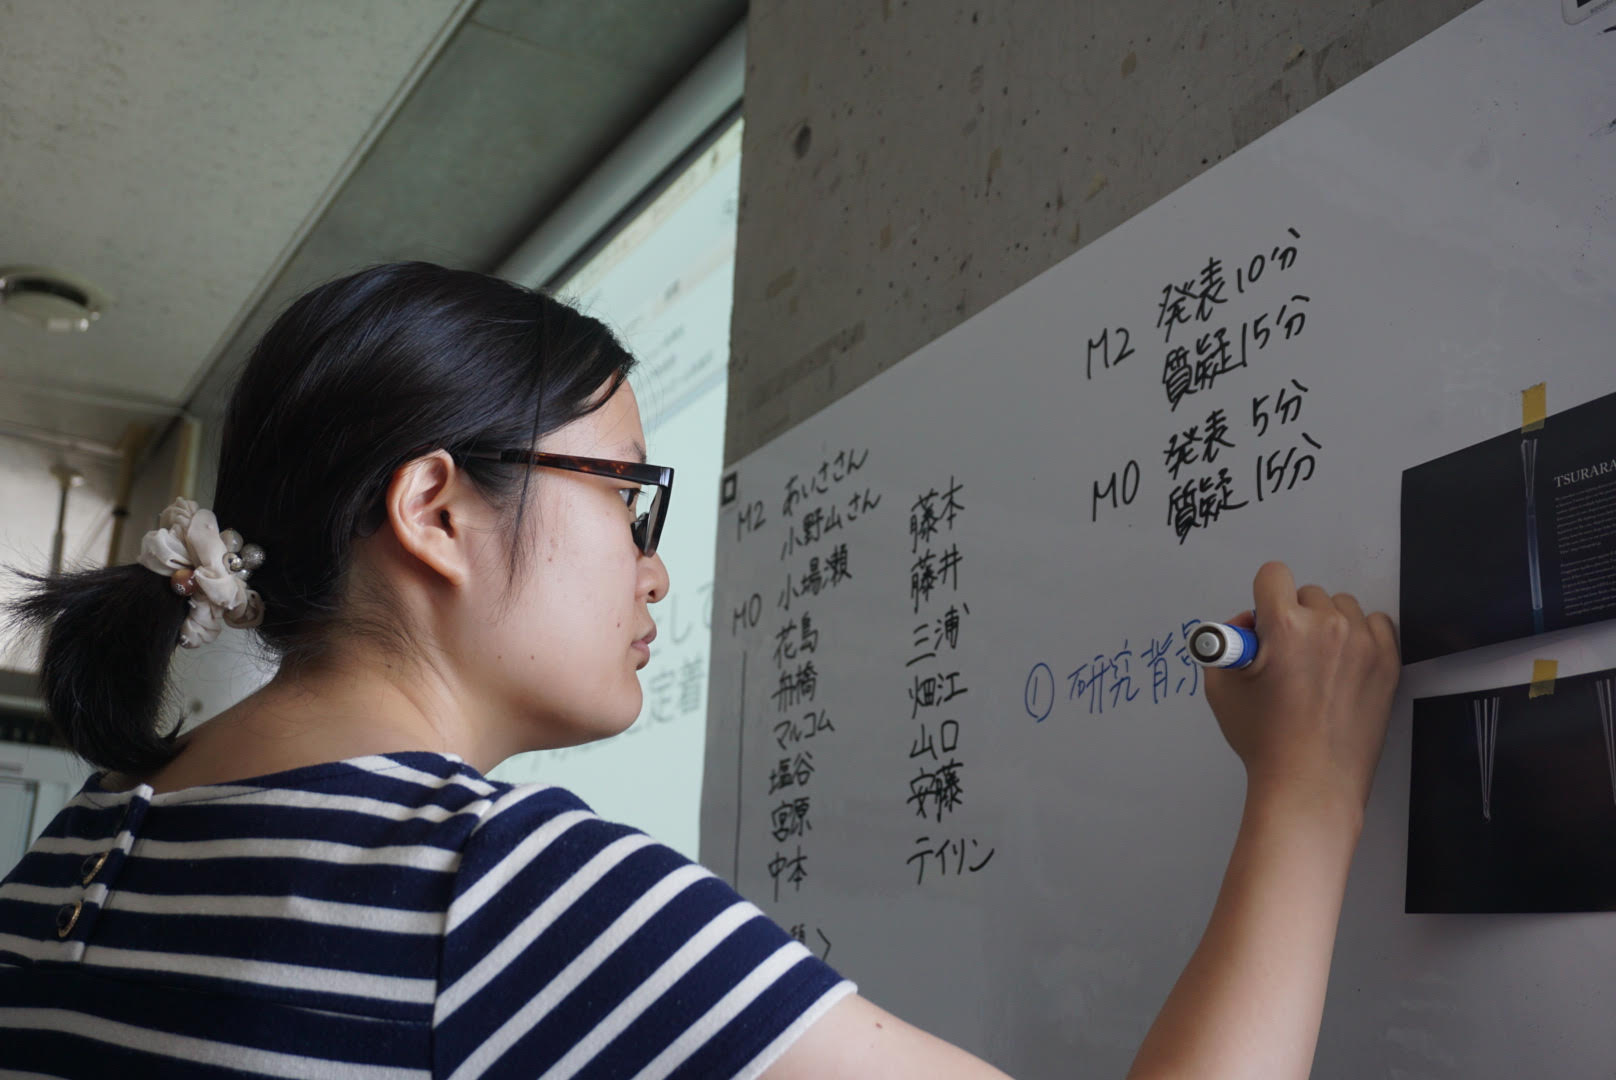 M2 あいささん
小野山さん
M0 小場瀬
花島
舟橋
マルコム
塩谷
宮原
中本
藤本
藤井
三浦
畑江
山口
安藤
テイリン
M2 発表 10分
質疑 15分
M0 発表 5分
質疑 15分
① 研究背
TSURARA
定着